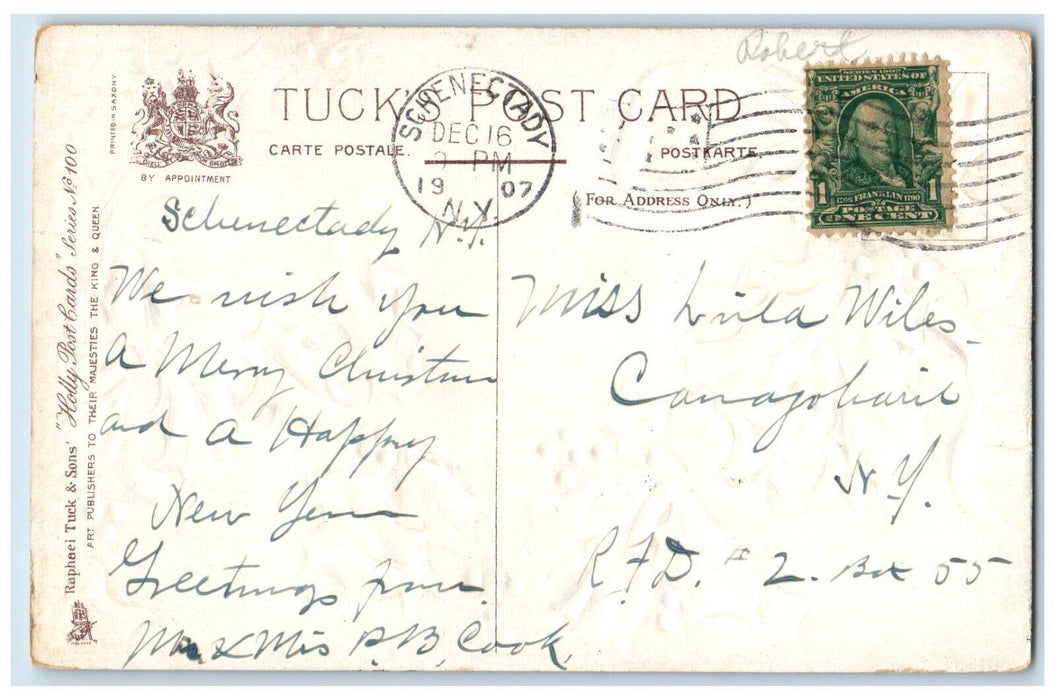 Robert
TUCK'S POST CARD
CARTE POSTALE.
POSTKARTE.
(FOR ADDRESS ONLY.)
BY APPOINTMENT
PRINTED IN SAXONY
Raphael Tuck & Sons' "Holly Post Cards" Series No 100
ART PUBLISHERS TO THEIR MAJESTIES THE KING & QUEEN
SCHENECTADY
DEC 16
PM
19 07
N.Y.
SERIES 1902
UNITED STATES OF
AMERICA
1706 FRANKLIN 1790
1 POSTAGE 1
ONE CENT
Schenectady N.Y.
We wish you
A Merry Christmas
and a Happy
New Year
Greetings from
Mr & Mrs P.B. Cook.
Miss Lula Wiles
Canajoharie
N.Y.
R.F.D. # 2. Box 55